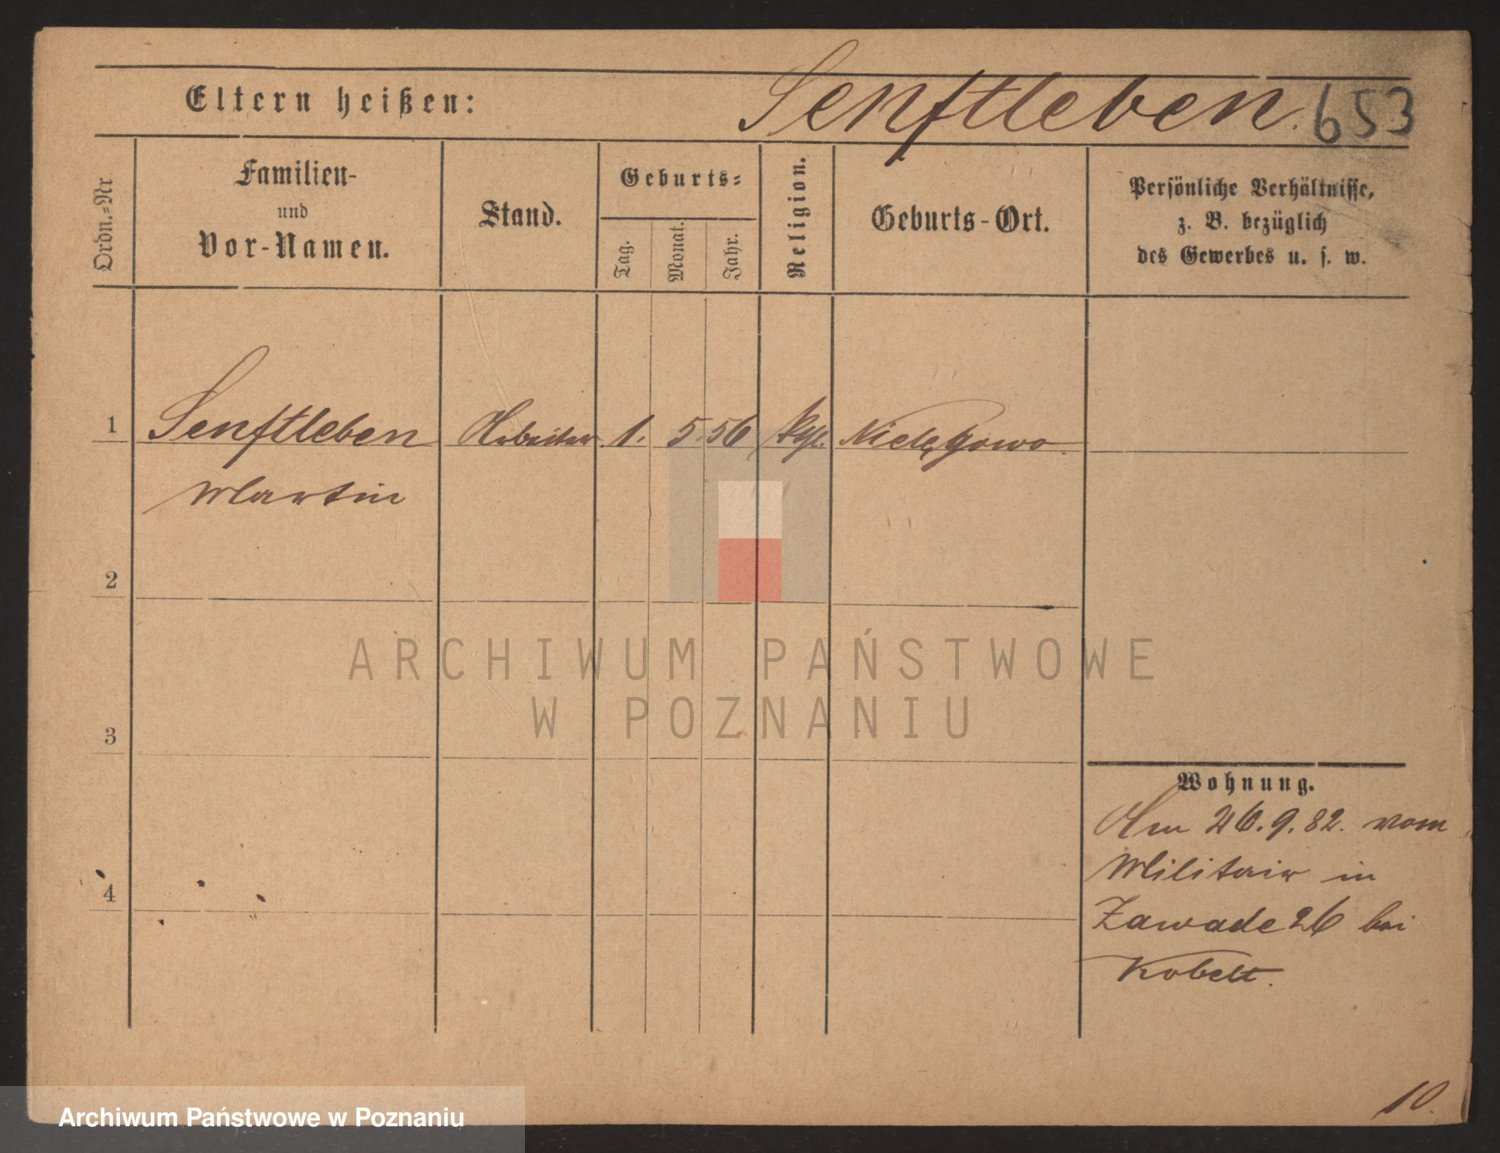 Eltern heißen: Senftleben. 653
Ordn.=Nr
Familien-
und
Vor-Namen.
Stand.
Geburts=
Tag.
Monat.
Jahr.
Religion.
Geburts-Ort.
Persönliche Verhältnisse,
z. B. bezüglich
des Gewerbes u. s. w.
1 Senftleben Arbeiter 1. 5. 56 Nielęgowo.
Martin
2
ARCHIWUM PAŃSTWOWE
W POZNANIU
3
Wohnung.
Am 26.9.82. vom
Militair in
4
Zawade 26 bei
Kobelt.
10.
Archiwum Państwowe w Poznaniu